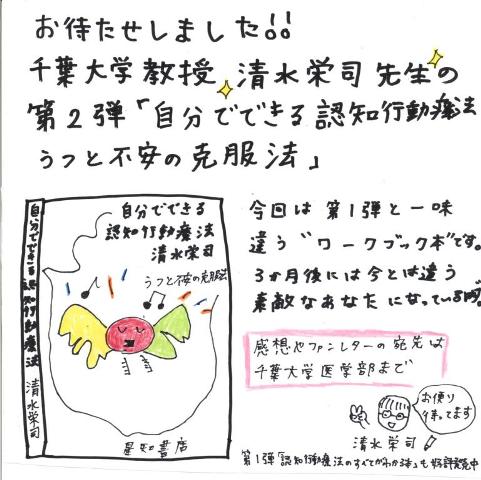 お待たせしました!!
千葉大学教授 清水栄司先生の
第2弾「自分でできる認知行動療法
うつと不安の克服法」
自分でできる認知行動療法 清水栄司
自分でできる
認知行動療法
清水栄司
うつと不安の克服法
星和書店
今回は第1弾と一味
違う"ワークブック本"です。
3か月後には今とは違う
素敵なあなたになっている
感想やファンレターの宛先は
千葉大学医学部まで
お便り
待ってます
清水栄司
第1弾「認知行動療法のすべてがわかる本」も好評発売中